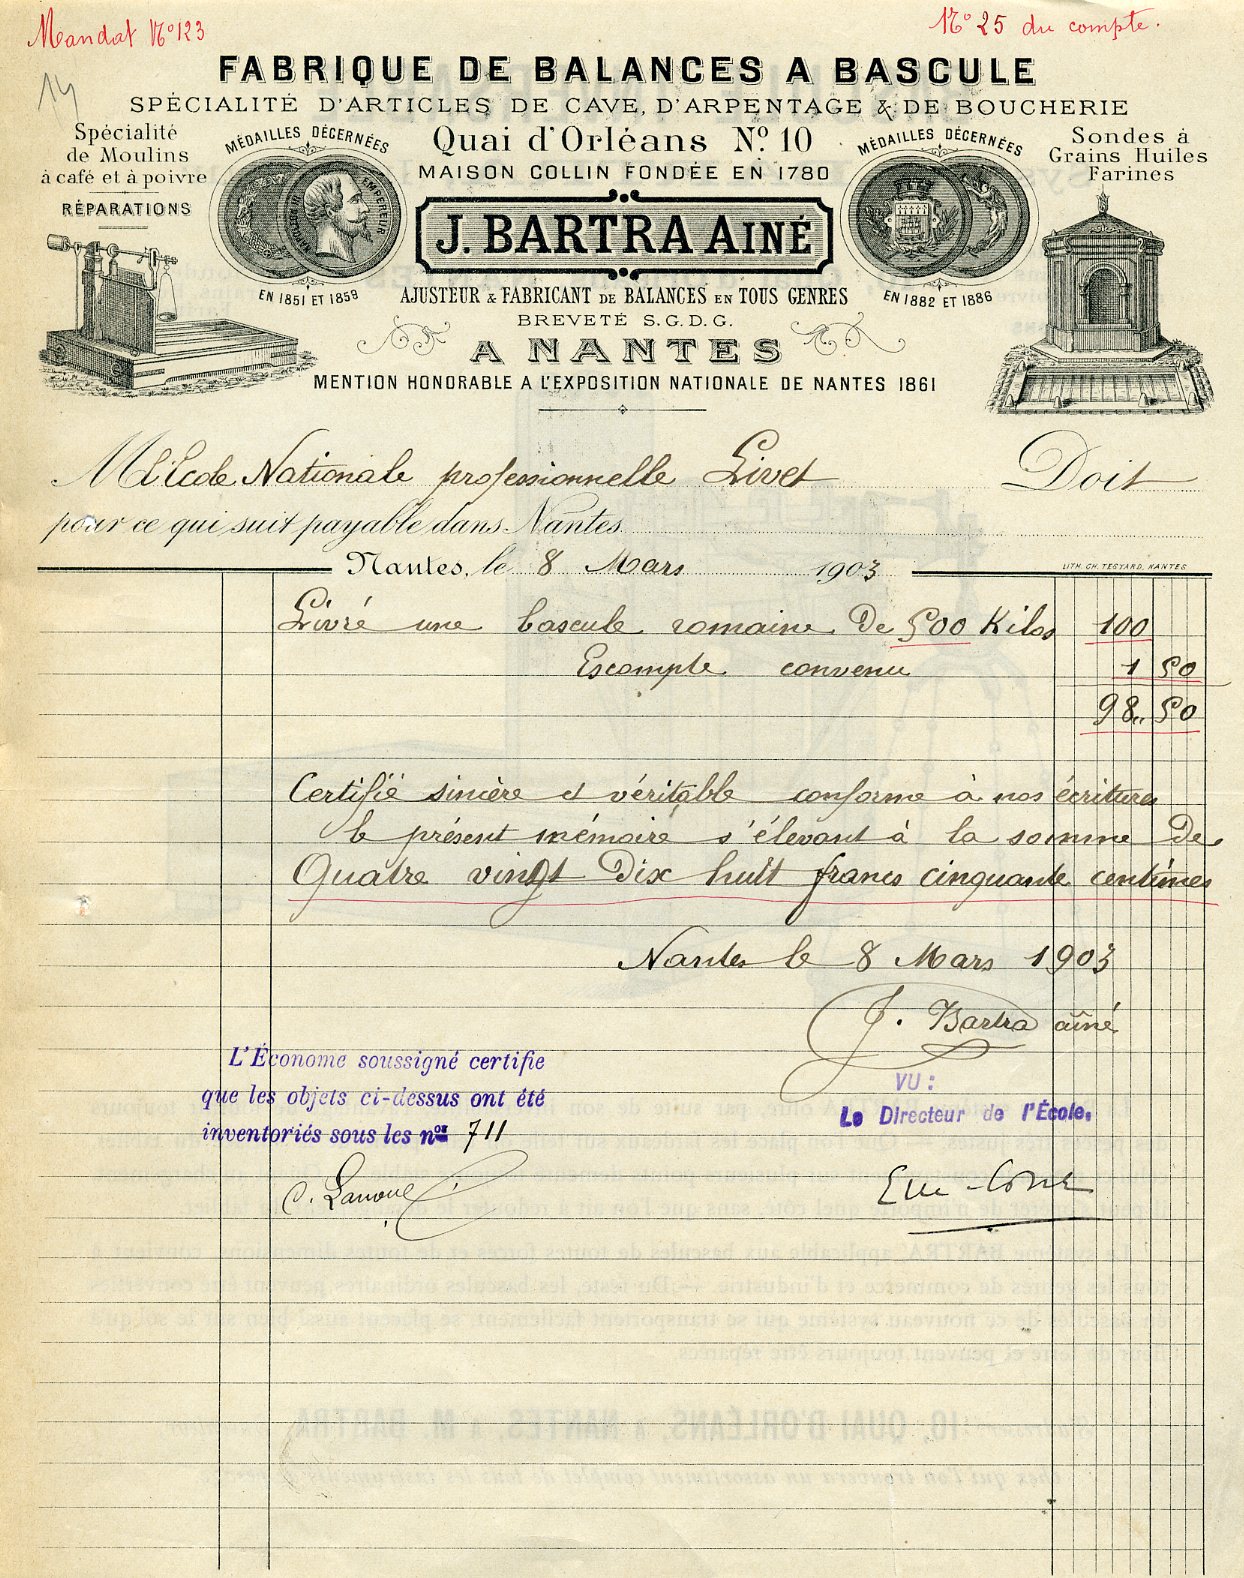 Mandat N° 123
N° 25 du compte.
14
FABRIQUE DE BALANCES A BASCULE
SPÉCIALITÉ D'ARTICLES DE CAVE, D'ARPENTAGE & DE BOUCHERIE
Spécialité
de Moulins
à café et à poivre
RÉPARATIONS
MÉDAILLES DÉCERNÉES
EMPEREUR
EN 1851 ET 1859
Quai d'Orléans N° 10
MAISON COLLIN FONDÉE EN 1780
J. BARTRA AINÉ
AJUSTEUR & FABRICANT DE BALANCES EN TOUS GENRES
BREVETÉ S.G.D.G.
A NANTES
MENTION HONORABLE A L'EXPOSITION NATIONALE DE NANTES 1861
MÉDAILLES DÉCERNÉES
EN 1882 ET 1886
Sondes à
Grains Huiles
Farines
M l'École Nationale professionnelle Livet Doit
pour ce qui suit payable dans Nantes
Nantes, le 8 Mars 1903
LITH. CH. TESTARD, NANTES
Livré une bascule romaine de 500 Kilos 100
Escompte convenu 1 50
98 " 50
Certifié sincère et véritable conforme à nos écritures
le présent mémoire s'élevant à la somme de
Quatre vingt Dix huit francs cinquante centimes
Nantes le 8 Mars 1903
J. Bartra aîné
L'Économe soussigné certifie
que les objets ci-dessus ont été
inventoriés sous les nos 711
VU :
Le Directeur de l'École.